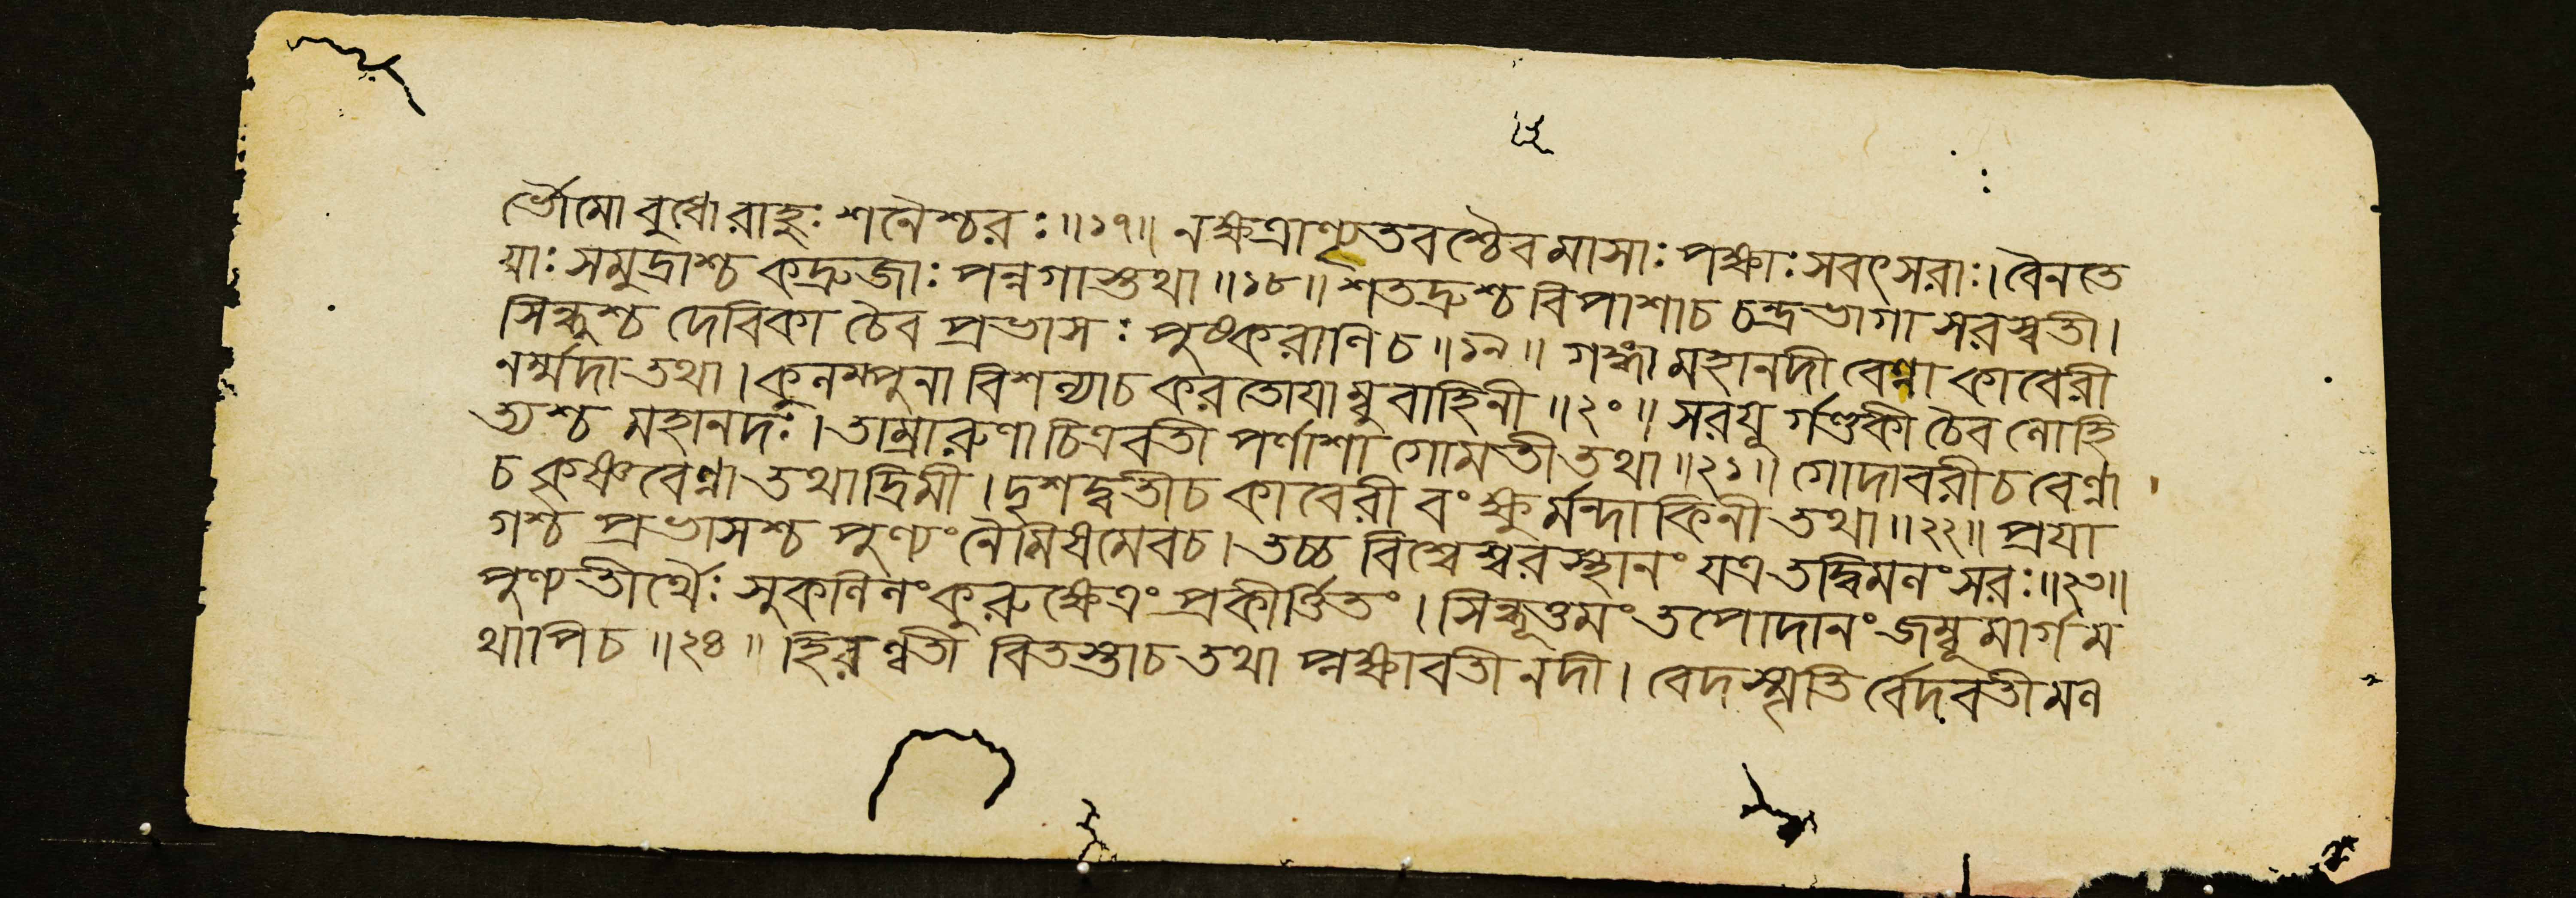 র্ভৌমো বুধো রাহুঃ শনৈশ্চরঃ॥১৭॥ নক্ষত্রাণ্যৃতবশ্চৈব মাসাঃ পক্ষাঃ সবৎসরাঃ। বৈনতে
য়াঃ সমুদ্রাশ্চ কদ্রুজাঃ পন্নগাস্তথা॥১৮॥ শতদ্রুশ্চ বিপাশাচ চন্দ্রভাগা সরস্বতী।
সিন্ধুশ্চ দেবিকা চৈব প্রভাসঃ পুষ্করাণি চ॥১৯॥ গঙ্গা মহানদী বেণ্ণা কাবেরী
নর্ম্মদা তথা। কুনম্পুনা বিশল্যাচ করতোযাম্বুবাহিনী॥২০॥ সরযূ র্গণ্ডকী চৈব লোহি
ত্যশ্চ মহানদঃ। তাম্রারুণা চিত্রবতী পর্ণাশা গোমতী তথা॥২১॥ গোদাবরী চ বেণ্ণা
চ কৃষ্ণবেণ্ণা তথাদ্রিমী। দৃশদ্বতীচ কাবেরী বংক্ষু র্মন্দাকিনী তথা॥২২॥ প্রযা
গশ্চ প্রভাসশ্চ পুণ্যং নৈমিষমেবচ। তচ্চ বিশ্বেশ্বরস্থানং যত্র তদ্বিমলং সরঃ॥২৩॥
পুণ্যতীর্থৈঃ সুকলিলং কুরুক্ষেত্রং প্রকীর্ত্তিতং। সিন্ধূত্তমং তপোদানং জম্বূমার্গম
থাপিচ॥২৪॥ হিরণ্বতী বিতস্তাচ তথা প্লক্ষাবতী নদী। বেদস্মৃতি র্বেদবতী মল